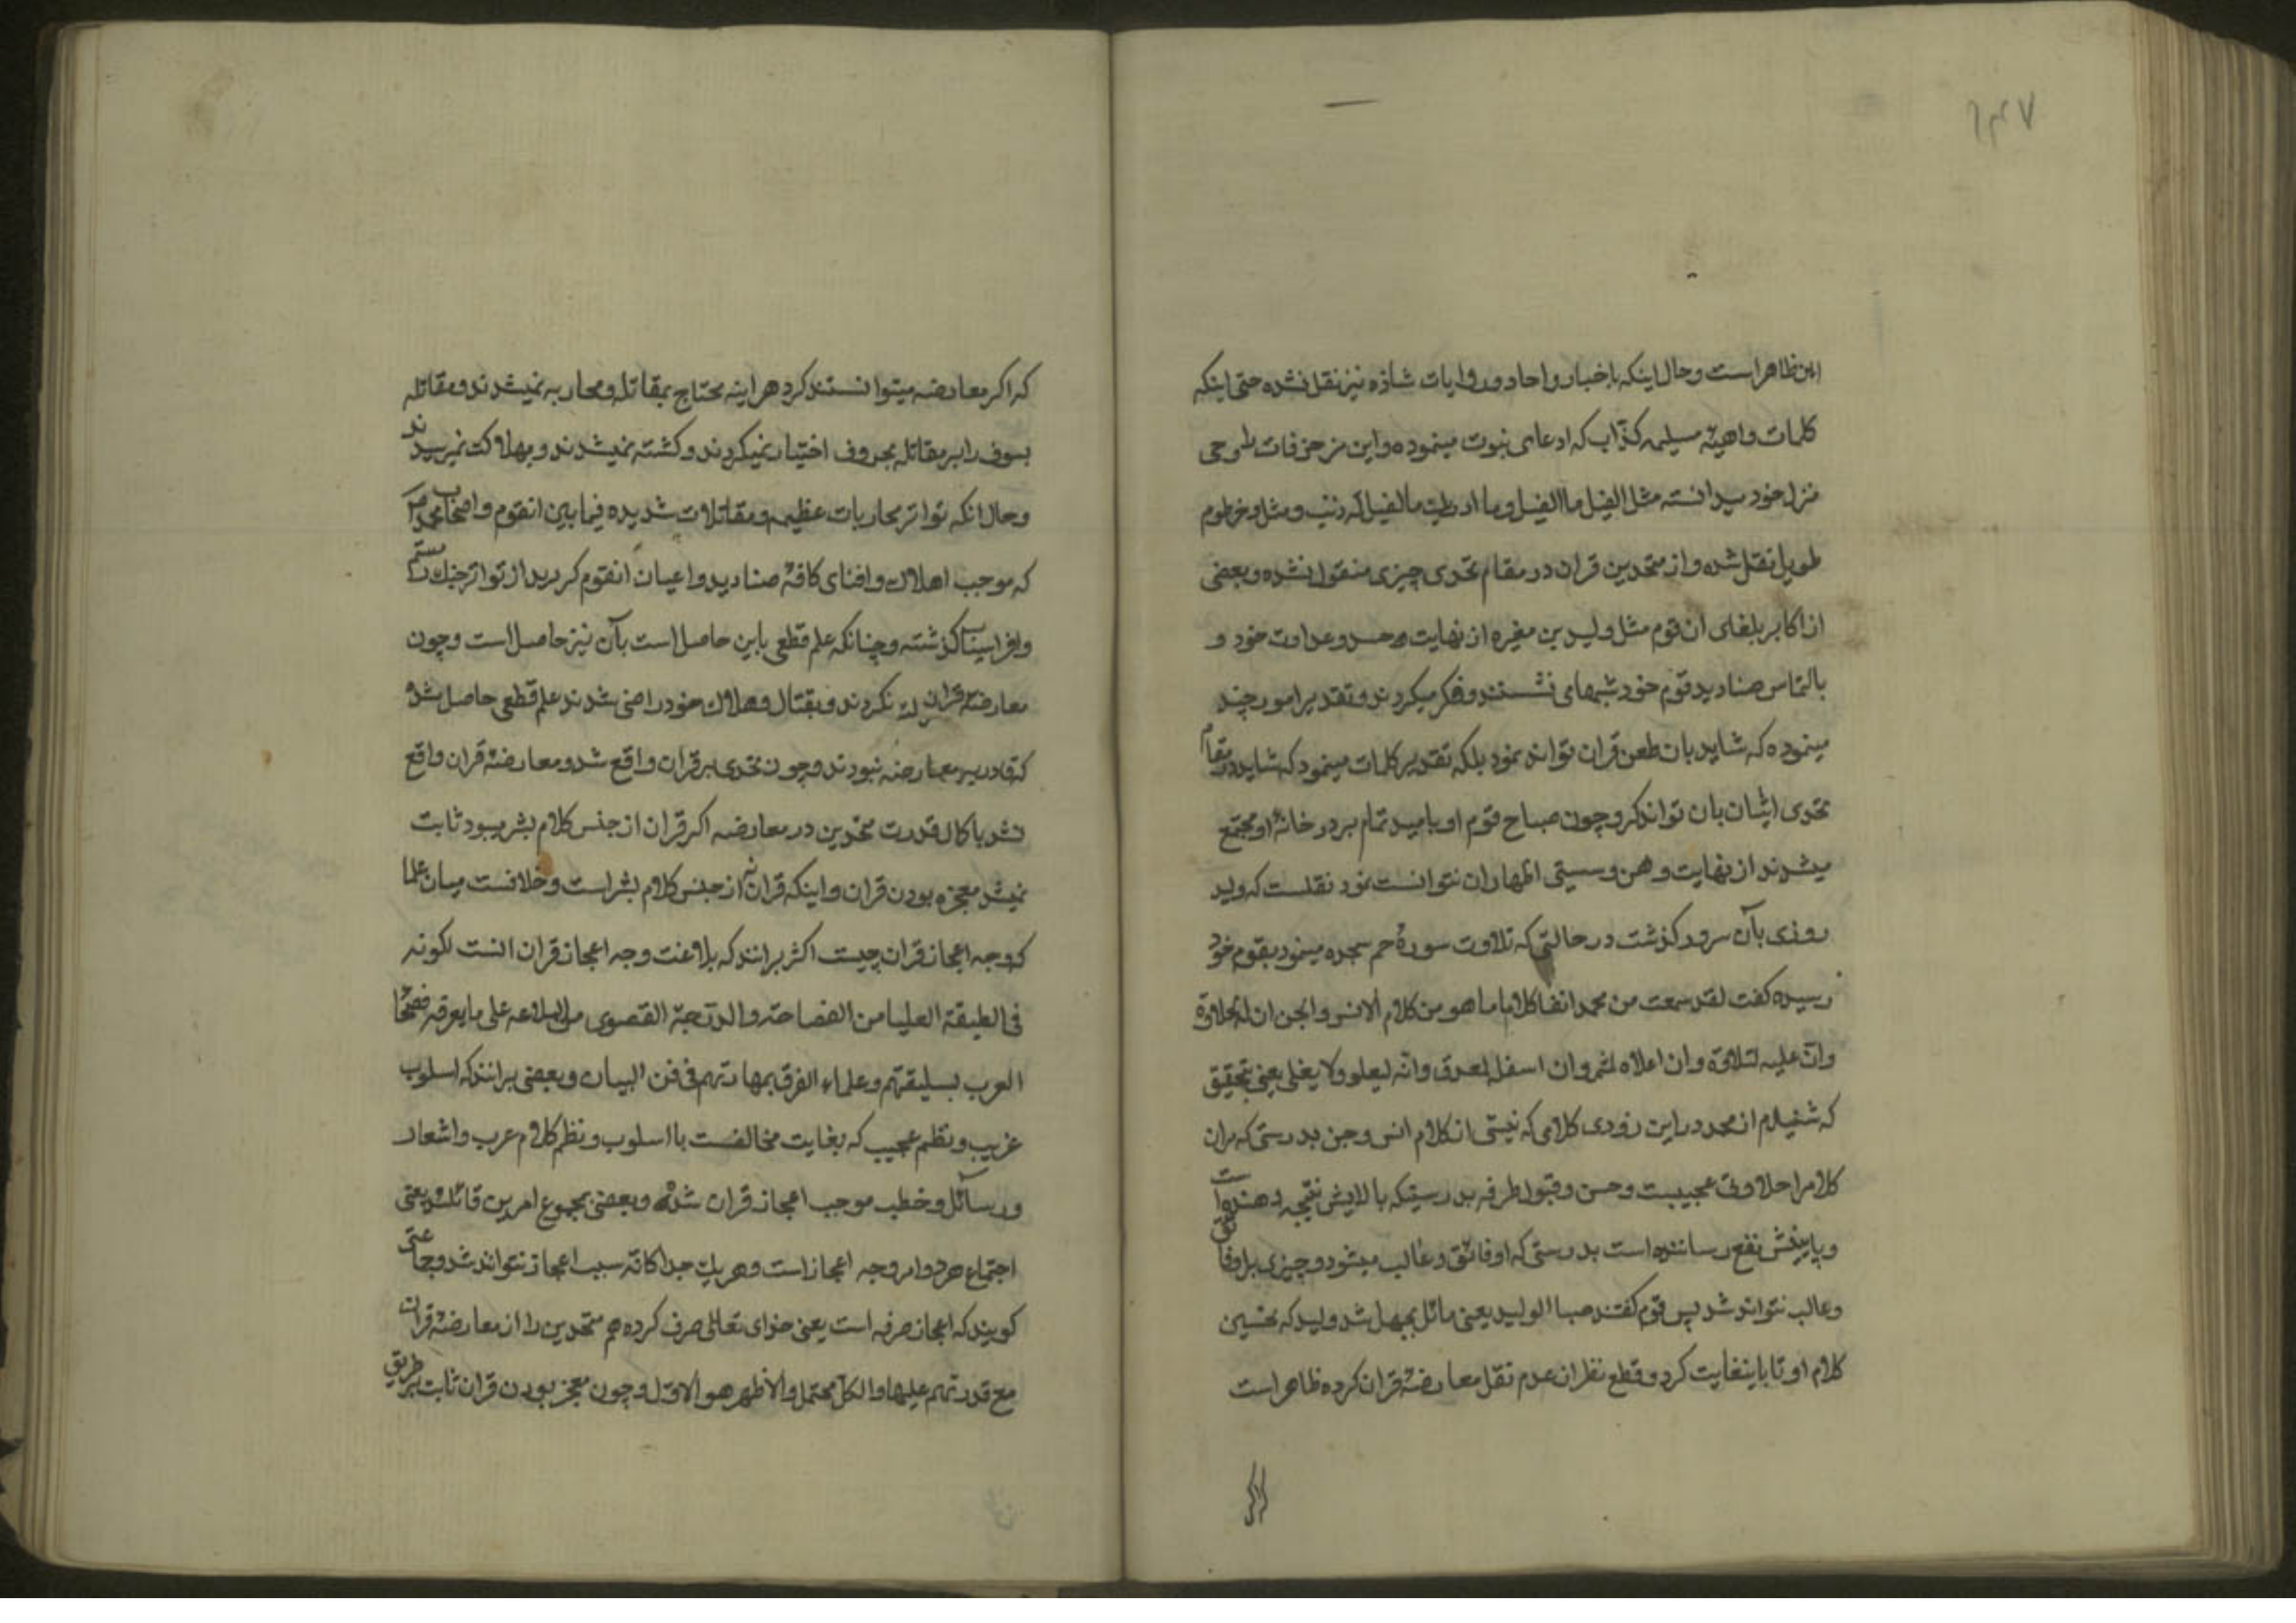 ۱۴۷
این ظاهر است و حال اینکه باخبار واحاد و روایات شاذه نیز نقل نشده حتی اینکه
کلمات واهیهٔ مسیلمه کذّاب که ادعای نبوت مینموده و این مزخرفات طوحی
منزل خود میدانسته مثل الفیل ما الفیل و ما ادریك ما الفیل له ذنب و مثل و خرطوم
طویل نقل شده و از متحدین قران در مقام تحدی چیزی منقول نشده و بعضی
از اکابر بلغای ان قوم مثل ولید بن مغیره از نهایت حسد و عداوت خود و
بالتماس صنادید قوم خود شبها می نشستند و فکر میکردند و تقدیر امور چند
مینموده که شاید بان طعن قران تواند نمود بلکه تقدیر کلمات مینمود که شاید در مقام
تحدی ایشان بان تواند کرد و چون صباح قوم او بامید تمام بر در خانهٔ او مجتمع
میشدند از نهایت وهن و سستی اظهار ان نتوانست نمود نقلست که ولید
روزی بآن سرور کذشت در حالتی که تلاوت سورهٔ حم سجده مینمود بقوم خود
رسیده کفت لقد سمعت من محمد انفا کلاما ما هو من کلام الانس و الجن ان له لحلاوة
وانّ علیه لتلاقة وان اعلاه لثمر وان اسفله لمعدق وانّه لیعلو ولا یعلی یعنی بتحقیق
که شنیدم از محمد در این زودی کلامی که نیستی از کلام انس و جن بدرستی که مران
کلام را حلاوتی عجیبست و حسن و قبول طرفه بدرستیکه بالایش نتیجه دهنده است
و پایینش نفع رساننده است بدرستی که او فائق و غالب میشود و چیزی بر او فائق
و غالب نتواند شد پس قوم کفتند صبا الولید یعنی مائل بجهل شد ولید که تحسین
کلام او تا باینغایت کرد و قطع نظر از عدم نقل معارضهٔ قران کرده ظاهر است
که اکر
که اکر معارضه میتوانستند کرد هراینه محتاج بمقاتله و محاربه نمیشدند و مقاتله
بسوف را بر مقاتله بحروف اختیار نمیکردند و کشته نمیشدند و بهلاکت نمیرسیدند
و حال انکه تواتر محاربات عظیمه و مقاتلات شدیده فیما بین انقوم و اصحاب محمد ص
که موجب اهلاك و افنای کافهٔ صنادید و اعیان انقوم کردید از تواتر جنك رستم
و افراسیاب کذشته و چنانکه علم قطعی باین حاصل است بآن نیز حاصل است و چون
معارضهٔ قران نکردند و بقتال و هلاك خود راضی شدند علم قطعی حاصل شد
که قادر بر معارضه نبودند و چون تحدی بر قران واقع شد و معارضهٔ قران واقع
نشد با کمال قدرت متحدین در معارضه اکر قران از جنس کلام بشر میبود ثابت
نمیشد معجزه بودن قران و اینکه قران نه از جنس کلام بشر است و خلافست میان علما
که وجه اعجاز قران چیست اکثر برانند که بلاغت وجه اعجاز قران است لکونه
فی الطبقة العلیا من الفصاحة والدرجة القصوی من البلاغه علی ما یعرفه فصحا
العرب بسلیقتهم و علماء الفرق بمهارتهم فی فن البیان و بعضی برانند که اسلوب
غریب و نظم عجیب که بغایت مخالفست با اسلوب و نظم کلام عرب و اشعار
و رسائل و خطب موجب اعجاز قران شده و بعضی بمجموع امرین قائلند یعنی
اجتماع هر دو امر وجه اعجاز است و هریك جداکانه سبب اعجاز نتواند شد و جماعتی
کویند که اعجاز صرفه است یعنی خدای تعالی صرف کرده هم متحدین را از معارضهٔ قران
مع قدرتهم علیها والکل محتمل والاظهر هو الاول و چون معجز بودن قران ثابت بر طریق